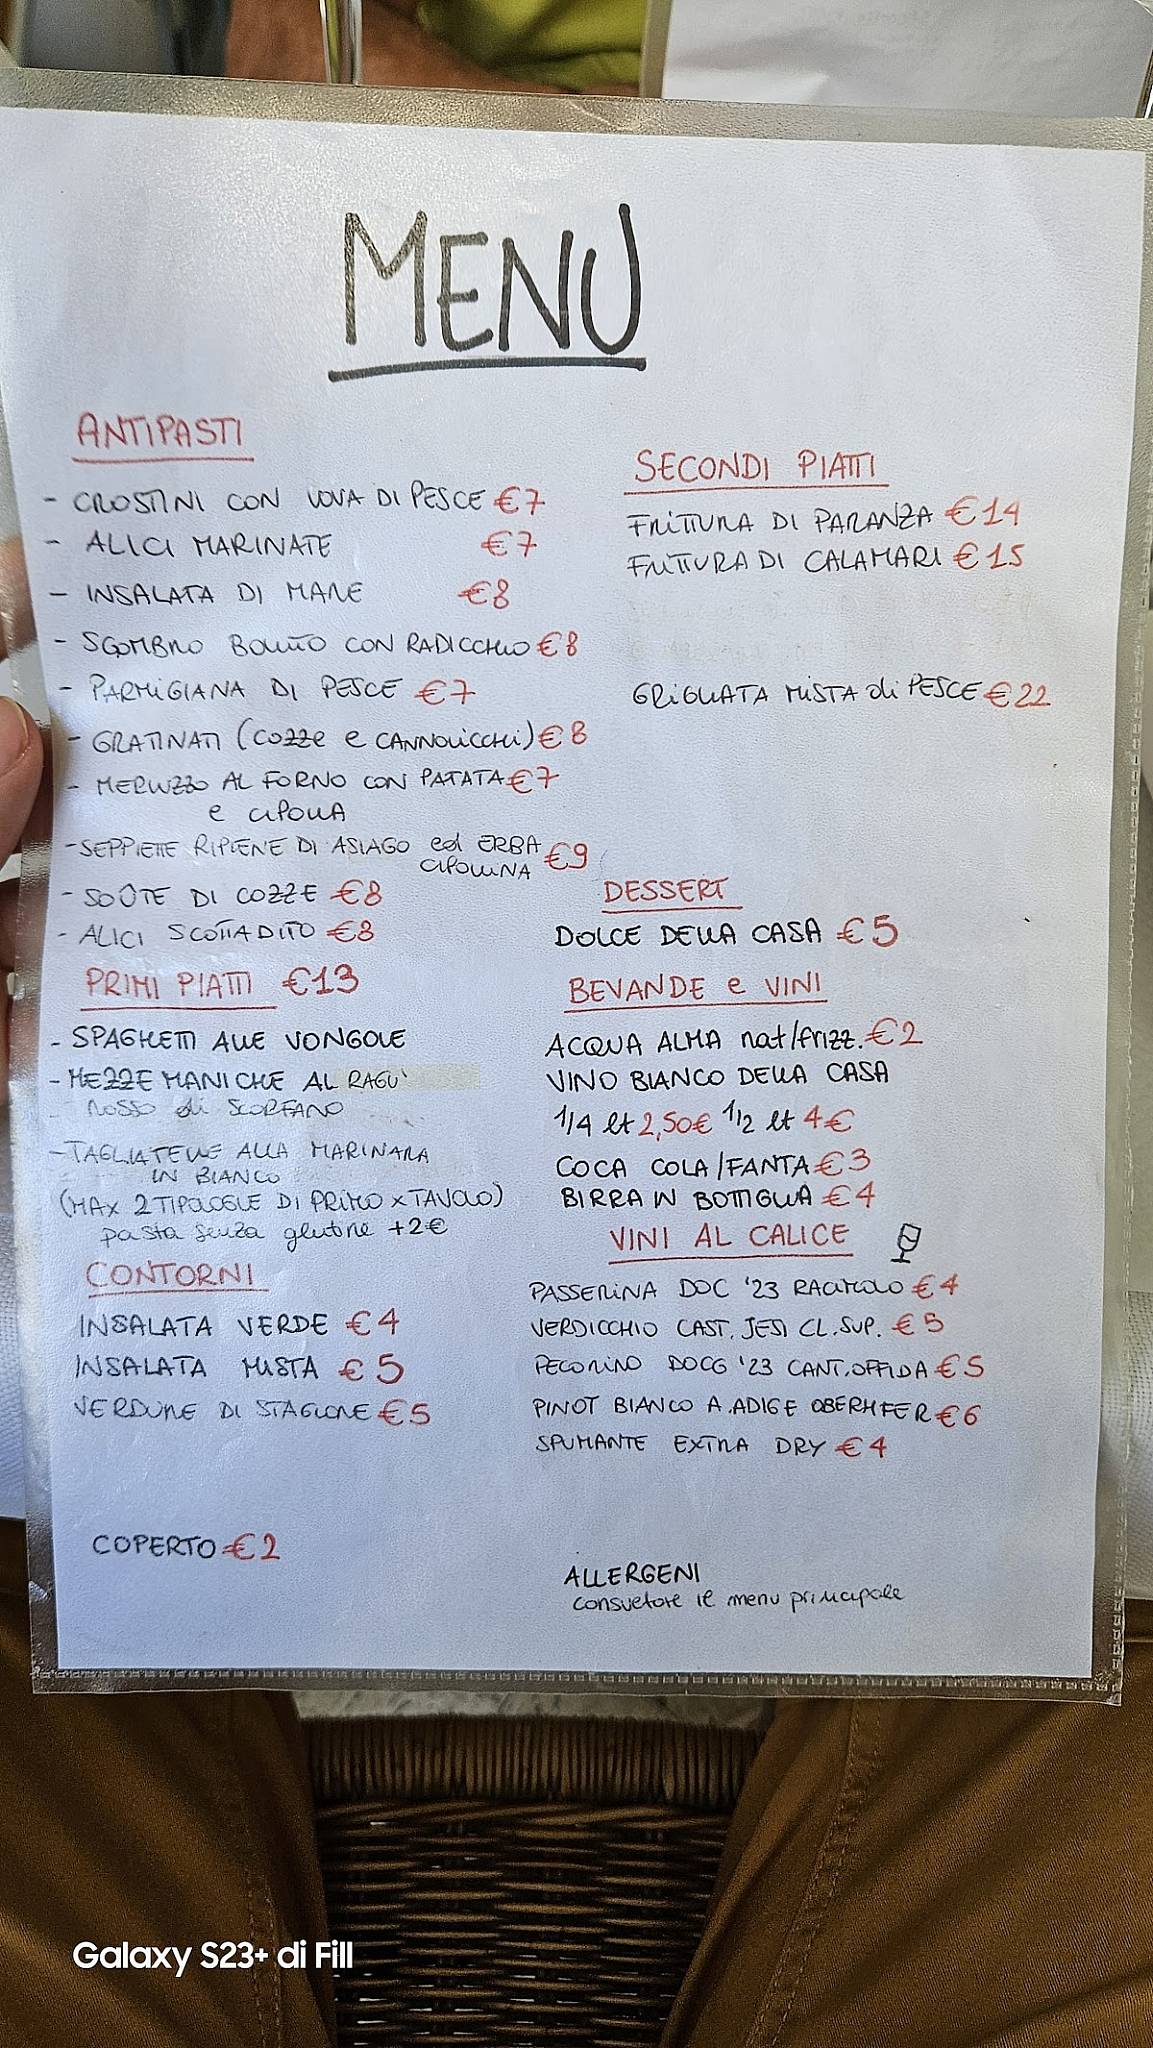 MENU
ANTIPASTI
- CROSTINI CON UOVA DI PESCE €7
- ALICI MARINATE €7
- INSALATA DI MARE €8
- SGOMBRO BOLLITO CON RADICCHIO €8
- PARMIGIANA DI PESCE €7
- GRATINATI (COZZE e CANNOLICCHI) €8
- MERLUZZO AL FORNO CON PATATA €7
e CIPOLLA
- SEPPIETTE RIPIENE DI ASIAGO ed ERBA
CIPOLLINA €9
- SOÛTE DI COZZE €8
- ALICI SCOTTADITO €8
PRIMI PIATTI €13
- SPAGHETTI ALLE VONGOLE
- MEZZE MANICHE AL RAGU'
ROSSO di SCORFANO
- TAGLIATELLE ALLA MARINARA
IN BIANCO
(MAX 2 TIPOLOGIE DI PRIMO x TAVOLO)
pasta senza glutine +2€
CONTORNI
INSALATA VERDE €4
INSALATA MISTA €5
VERDURE DI STAGIONE €5
COPERTO €2
SECONDI PIATTI
FRITTURA DI PARANZA €14
FRITTURA DI CALAMARI €15
GRIGLIATA MISTA di PESCE €22
DESSERT
DOLCE DELLA CASA €5
BEVANDE e VINI
ACQUA ALMA nat/frizz. €2
VINO BIANCO DELLA CASA
1/4 lt 2,50€ 1/2 lt 4€
COCA COLA/FANTA €3
BIRRA IN BOTTIGLIA €4
VINI AL CALICE
PASSERINA DOC '23 RACIMOLO €4
VERDICCHIO CAST. JESI CL. SUP. €5
PECORINO DOCG '23 CANT. OFFIDA €5
PINOT BIANCO A. ADIGE OBERMFER €6
SPUMANTE EXTRA DRY €4
ALLERGENI
consultare il menu principale
Galaxy S23+ di Fill